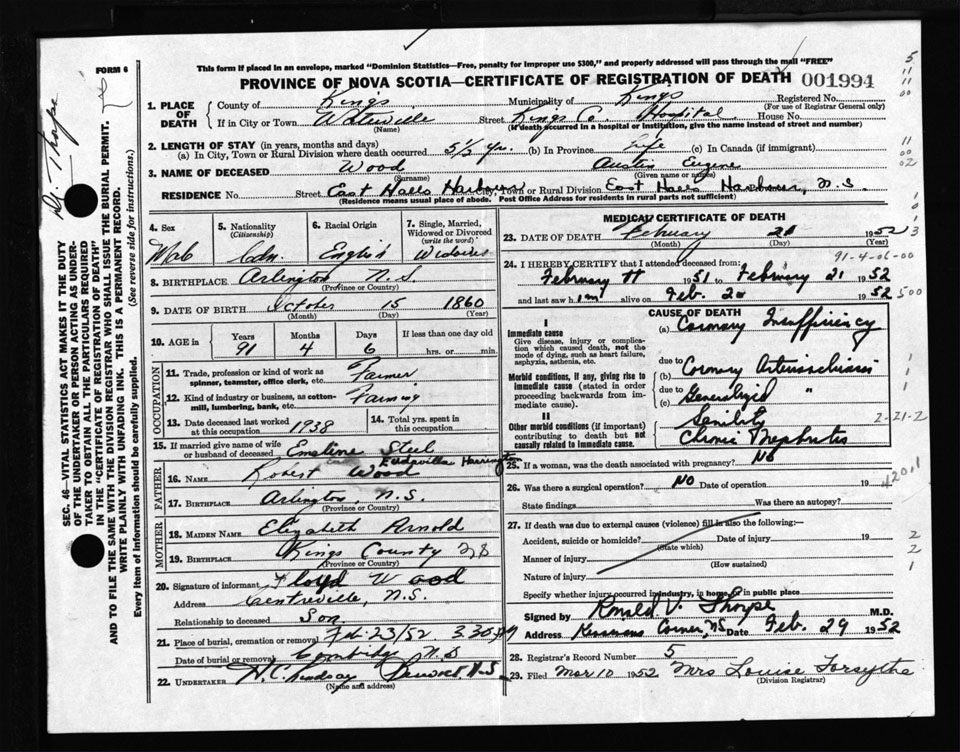 This form if placed in an envelope, marked "Dominion Statistics—Free, penalty for improper use $300," and properly addressed will pass through the mail "FREE"
FORM 6
PROVINCE OF NOVA SCOTIA—CERTIFICATE OF REGISTRATION OF DEATH 001994
1. PLACE OF DEATH County of Kings Municipality of Kings Registered No.
(For use of Registrar General only)
If in City or Town Waterville Street Kings Co. Hospital House No.
(Name) (If death occurred in a hospital or institution, give the name instead of street and number)
2. LENGTH OF STAY (in years, months and days)
(a) In City, Town or Rural Division where death occurred 5½ yr. (b) In Province Life (c) In Canada (if immigrant)
3. NAME OF DECEASED Wood Austin Eugene
(Surname) (Given name or names)
RESIDENCE No. Street East Halls Harbour City, Town or Rural Division East Halls Harbour, N.S.
(Residence means usual place of abode. Post Office Address for residents in rural parts not sufficient)
4. Sex
Male
5. Nationality
(Citizenship)
Cdn.
6. Racial Origin
English
7. Single, Married, Widowed or Divorced
(write the word)
Widower
8. BIRTHPLACE Arlington N.S.
(Province or Country)
9. DATE OF BIRTH October 15 1860
(Month) (Day) (Year)
10. AGE in Years Months Days If less than one day old
91 4 6 hrs. or min.
OCCUPATION
11. Trade, profession or kind of work as spinner, teamster, office clerk, etc. Farmer
12. Kind of industry or business, as cotton-mill, lumbering, bank, etc. Farming
13. Date deceased last worked at this occupation 1938
14. Total yrs. spent in this occupation
15. If married give name of wife or husband of deceased Emeline Steel
Eudavilla Harrington
FATHER
16. NAME Robert Wood
17. BIRTHPLACE Arlington, N.S.
(Province or Country)
MOTHER
18. MAIDEN NAME Elizabeth Arnold
19. BIRTHPLACE Kings County N.S
(Province or Country)
20. Signature of informant Floyd Wood
Address Centreville, N.S.
Relationship to deceased Son
21. Place of burial, cremation or removal Feb. 23/52 3.30
Date of burial or removal Cambridge N.S
22. UNDERTAKER H.C. Lindsay Berwick N.S
(Name and address)
MEDICAL CERTIFICATE OF DEATH
23. DATE OF DEATH February 21 1952
(Month) (Day) (Year)
91-4-06-00
24. I HEREBY CERTIFY that I attended deceased from:
February 1951 to February 21 1952
and last saw him alive on Feb. 20 1952
500
CAUSE OF DEATH
I
Immediate cause
Give disease, injury or complication which caused death, not the mode of dying, such as heart failure, asphyxia, asthenia, etc.
(a) Coronary Insufficiency
due to
Morbid conditions, if any, giving rise to immediate cause (stated in order proceeding backwards from immediate cause).
(b) Coronary Arteriosclerosis
due to
(c) Generalized "
II
Other morbid conditions (if important) contributing to death but not causally related to immediate cause.
Senility
Chronic Nephritis
2-21-2
25. If a woman, was the death associated with pregnancy? No
26. Was there a surgical operation? No Date of operation 19
4201
State findings Was there an autopsy?
27. If death was due to external causes (violence) fill in also the following:—
Accident, suicide or homicide? Date of injury 19
(State which)
Manner of injury
(How sustained)
Nature of injury
Specify whether injury occurred in industry, in home, or in public place
Signed by Ronald V. Thorpe M.D.
Address Kinsmans Corner, N.S Date Feb. 29 1952
28. Registrar's Record Number 5
29. Filed Mar 10 1952 Mrs Louise Forsythe
(Division Registrar)
Dr. Thorpe
SEC. 46—VITAL STATISTICS ACT MAKES IT THE DUTY OF THE UNDERTAKER OR PERSON ACTING AS UNDERTAKER TO OBTAIN ALL THE PARTICULARS REQUIRED IN THE "CERTIFICATE OF REGISTRATION OF DEATH" AND TO FILE THE SAME WITH THE DIVISION REGISTRAR WHO SHALL ISSUE THE BURIAL PERMIT. WRITE PLAINLY WITH UNFADING INK. THIS IS A PERMANENT RECORD.
Every item of information should be carefully supplied. (See reverse side for instructions.)